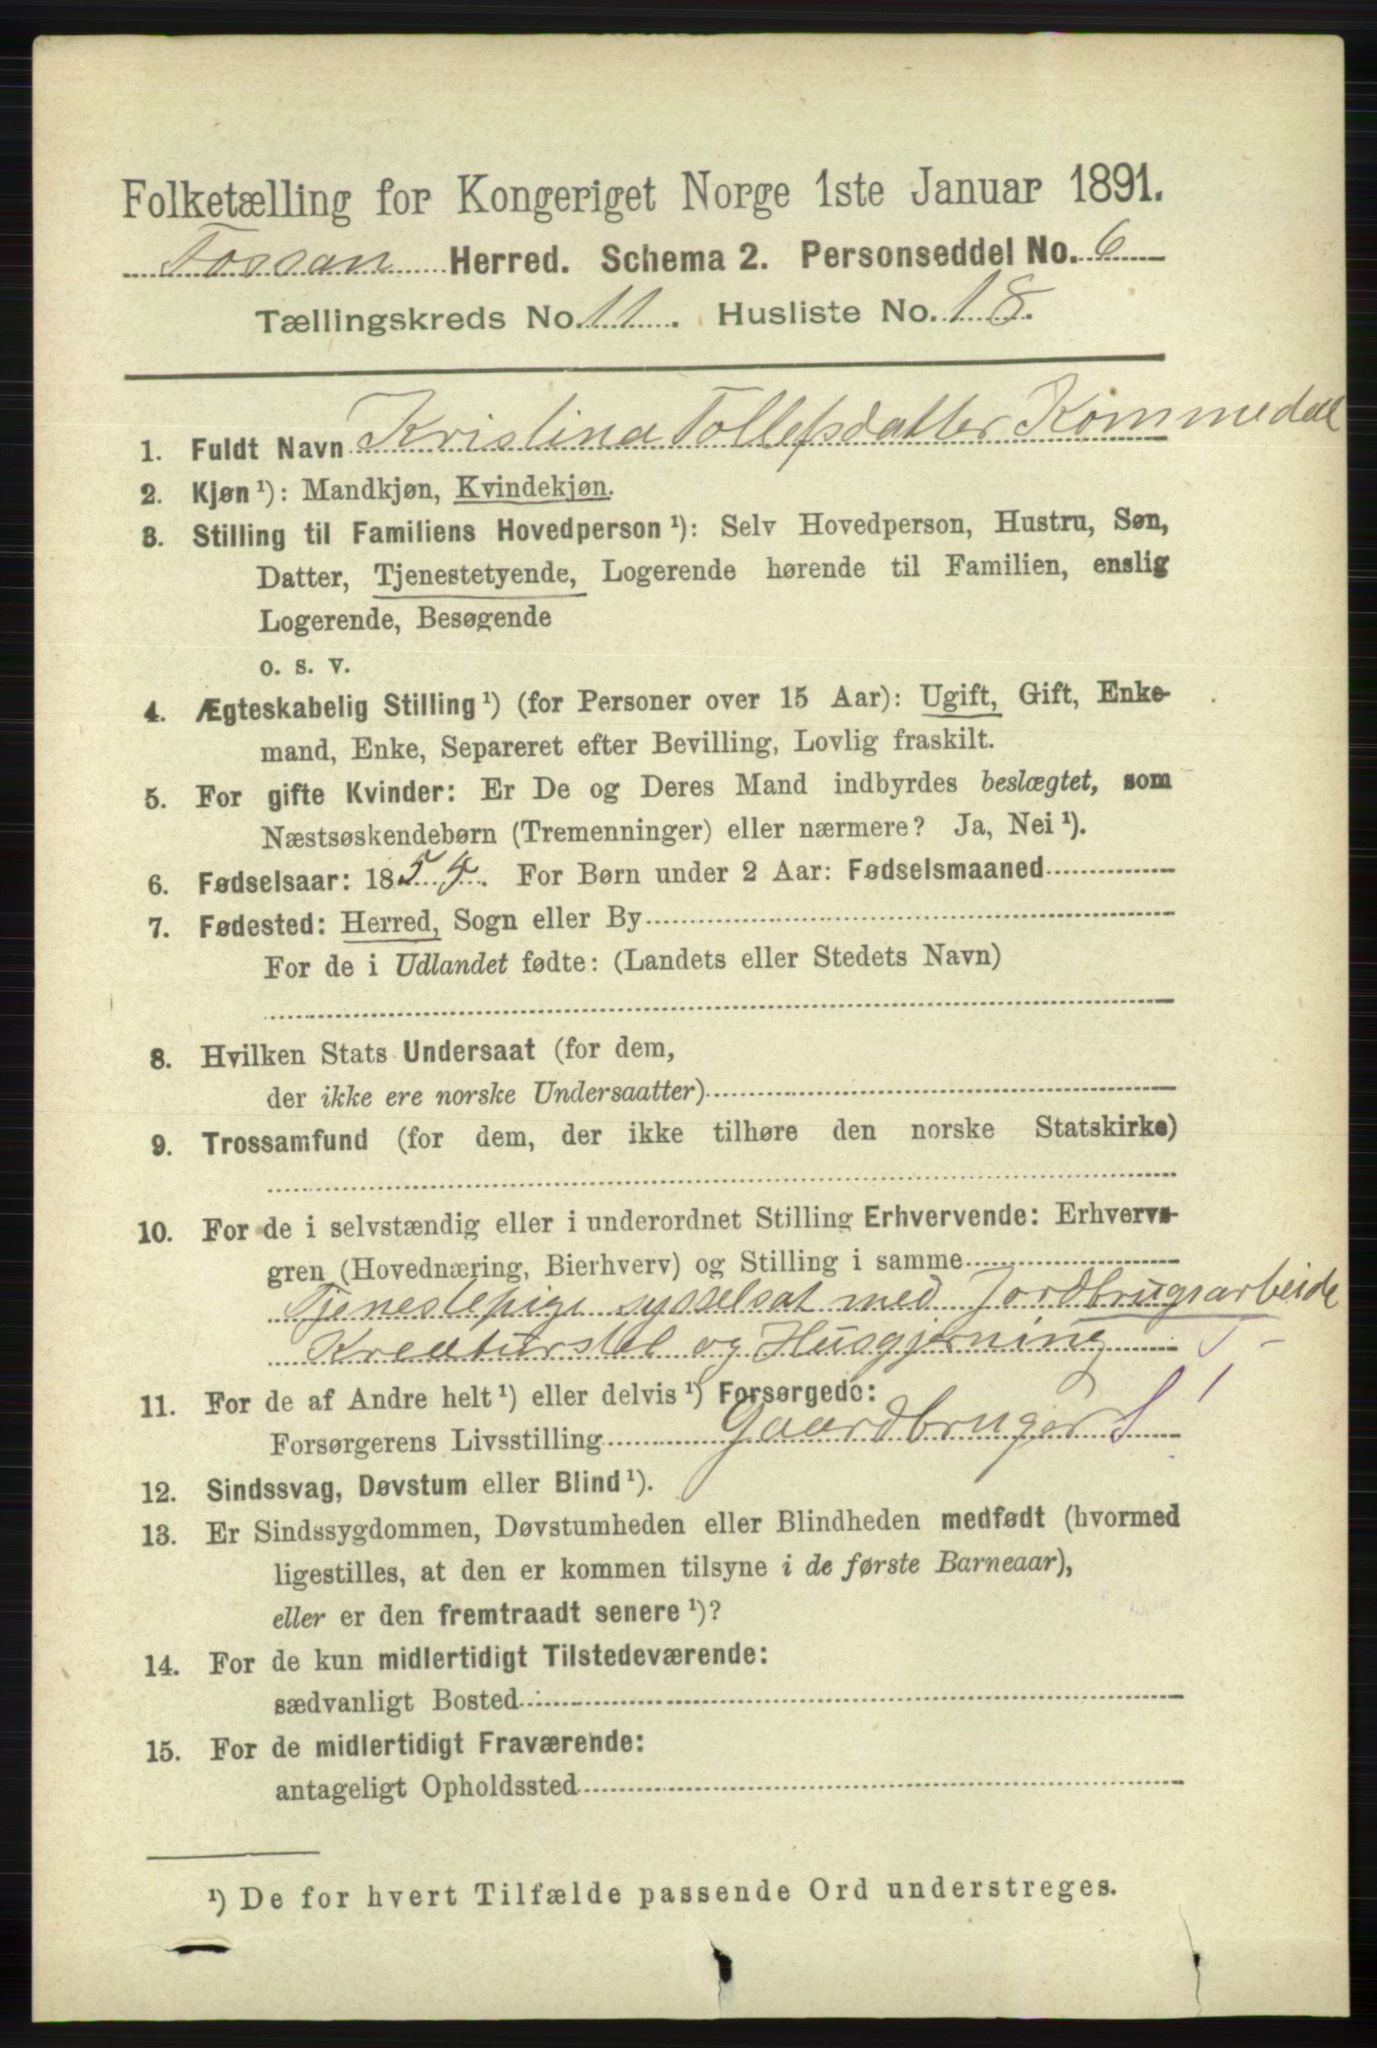 Folketælling for Kongeriget Norge 1ste Januar 1891.
Fossan Herred. Schema 2. Personseddel No. 6
Tællingskreds No. 11. Husliste No. 18.
1. Fuldt Navn Kristina Tollefsdatter Kommedal
2. Kjøn ¹): Mandkjøn, Kvindekjøn.
3. Stilling til Familiens Hovedperson ¹): Selv Hovedperson, Hustru, Søn,
Datter, Tjenestetyende, Logerende hørende til Familien, enslig
Logerende, Besøgende
o. s. v.
4. Ægteskabelig Stilling ¹) (for Personer over 15 Aar): Ugift, Gift, Enke-
mand, Enke, Separeret efter Bevilling, Lovlig fraskilt.
5. For gifte Kvinder: Er De og Deres Mand indbyrdes beslægtet, som
Næstsøskendebørn (Tremenninger) eller nærmere? Ja, Nei ¹).
6. Fødselsaar: 1854. For Børn under 2 Aar: Fødselsmaaned
7. Fødested: Herred, Sogn eller By
For de i Udlandet fødte: (Landets eller Stedets Navn)
8. Hvilken Stats Undersaat (for dem,
der ikke ere norske Undersaatter)
9. Trossamfund (for dem, der ikke tilhøre den norske Statskirke)
10. For de i selvstændig eller i underordnet Stilling Erhvervende: Erhvervs-
gren (Hovednæring, Bierhverv) og Stilling i samme
Tjenestepige sysselsat med Jordbrugsarbeide
Kreaturstel og Husgjerning T-
11. For de af Andre helt ¹) eller delvis ¹) Forsørgede:
Forsørgerens Livsstilling Gaardbruger S 1
12. Sindssvag, Døvstum eller Blind ¹).
13. Er Sindssygdommen, Døvstumheden eller Blindheden medfødt (hvormed
ligestilles, at den er kommen tilsyne i de første Barneaar),
eller er den fremtraadt senere ¹)?
14. For de kun midlertidigt Tilstedeværende:
sædvanligt Bosted
15. For de midlertidigt Fraværende:
antageligt Opholdssted
¹) De for hvert Tilfælde passende Ord understreges.